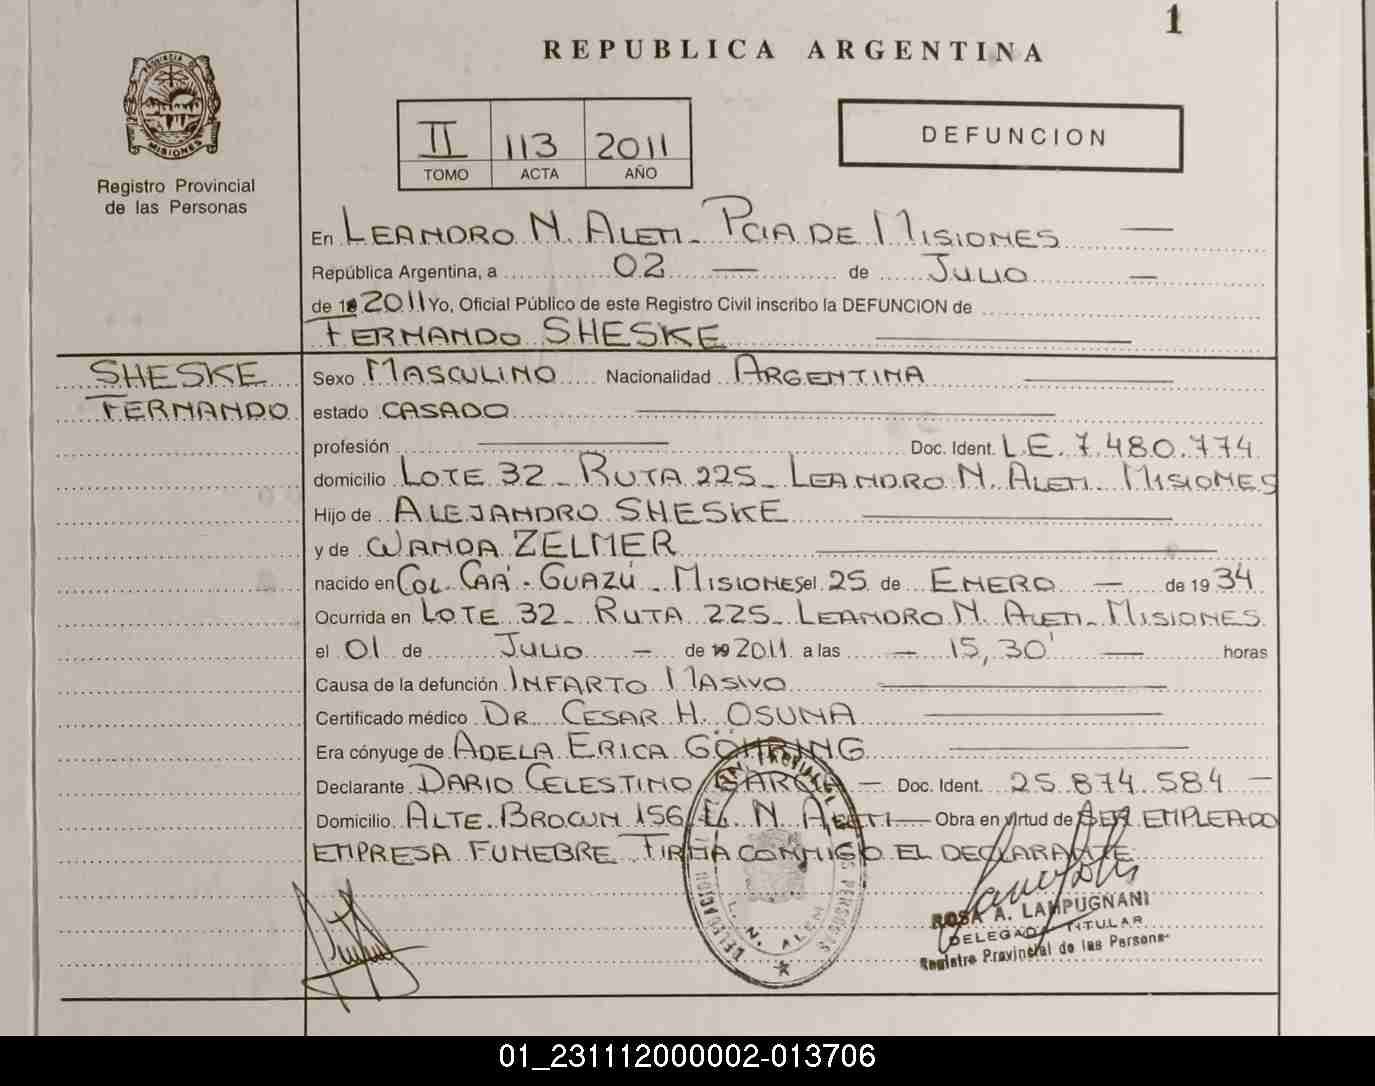 1
REPUBLICA ARGENTINA
PROVINCIA DE MISIONES
Registro Provincial
de las Personas
II 113 2011
TOMO ACTA AÑO
DEFUNCION
En LEANDRO N. ALEM - PCIA DE MISIONES —
República Argentina, a 02 — de JULIO —
de 19 2011 Yo, Oficial Público de este Registro Civil inscribo la DEFUNCION de
FERNANDO SHESKE
SHESKE
FERNANDO
Sexo MASCULINO Nacionalidad ARGENTINA
estado CASADO
profesión — Doc. Ident. L.E. 7.480.774
domicilio LOTE 32 - RUTA 225 - LEANDRO N. ALEM - MISIONES
Hijo de ALEJANDRO SHESKE
y de WANDA ZELMER
nacido en COL. CAÁ-GUAZÚ - MISIONES el 25 de ENERO — de 19 34
Ocurrida en LOTE 32 - RUTA 225 - LEANDRO N. ALEM - MISIONES
el 01 de JULIO — de 19 2011 a las — 15,30' — horas
Causa de la defunción INFARTO MASIVO
Certificado médico DR. CESAR H. OSUNA
Era cónyuge de ADELA ERICA GÖHRING
Declarante DARIO CELESTINO GARCIA — Doc. Ident. 25.874.584 —
Domicilio ALTE. BROWN 156, L. N. ALEM — Obra en virtud de SER EMPLEADO
EMPRESA FUNEBRE FIRMA CONMIGO EL DECLARANTE
L. N. ALEM
ROSA A. LAMPUGNANI
DELEGADA TITULAR
Registro Provincial de las Personas
01_231112000002-013706